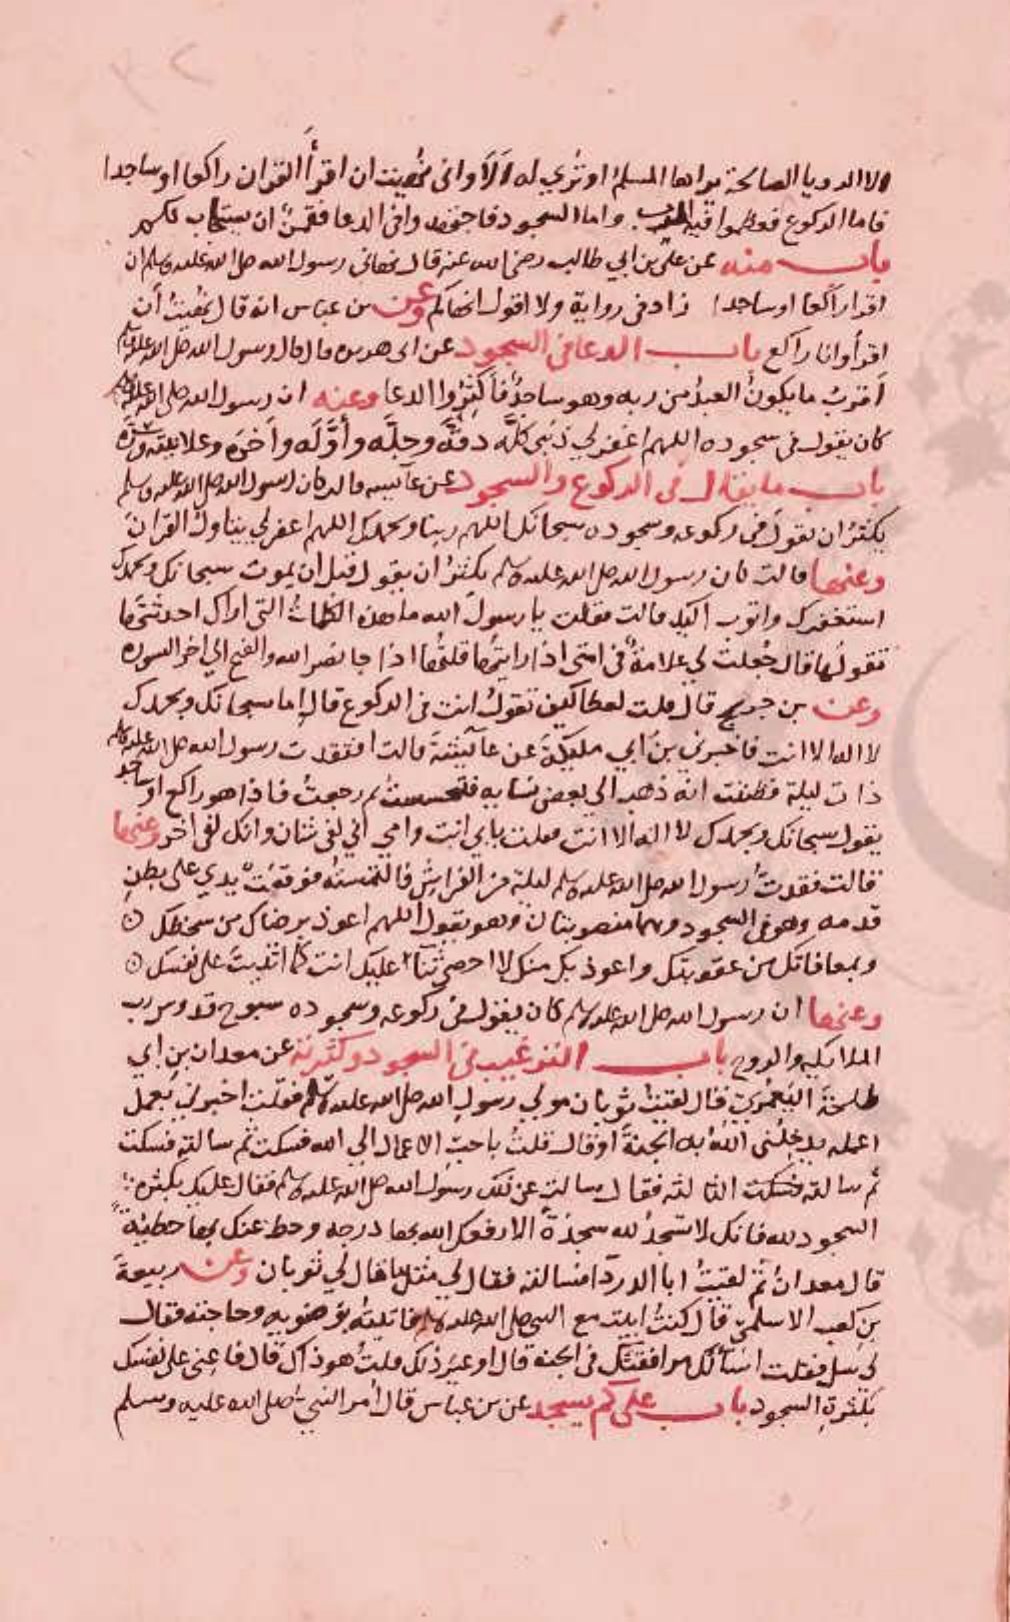 الا الرويا الصالحة يراها المسلم او ترى له الا واني نهيت ان اقرأ القران راكعا او ساجدا
فاما الركوع فعظموا فيه الرب واما السجود فاجتهدوا في الدعا فقمن ان يستجاب لكم
باب منه عن علي بن ابي طالب رضي الله عنه قال نهاني رسول الله صلى الله عليه وسلم ان
اقرا راكعا او ساجدا زاد في رواية ولا اقول انهاكم وعن بن عباس انه قال نهيت أن
اقرأ وانا راكع باب الدعا في السجود عن ابي هريره قال قال رسول الله صلى الله عليه وسلم
أقرب ما يكون العبد من ربه وهو ساجد فأكثروا الدعا وعنه ان رسول الله صلى الله عليه وسلم
كان يقول في سجوده اللهم اغفر لي ذنبي كله دقه وجله وأوله وأخره وعلانيته وسره
باب ما يقال في الركوع والسجود عن عائشه قالت كان رسول الله صلى الله عليه وسلم
يكثر ان يقول في ركوعه وسجوده سبحانك اللهم ربنا وبحمدك اللهم اغفر لي يتاول القران
وعنها قالت كان رسول الله صلى الله عليه وسلم يكثر ان يقول قبل ان يموت سبحانك وبحمدك
استغفرك واتوب اليك قالت فقلت يا رسول الله ما هذه الكلمات التي اراك احدثتها
تقولها قال جعلت لي علامة في امتي اذا رايتها قلتها اذا جا نصر الله والفتح الي اخر السوره
وعن بن جريج قال قلت لعطا كيف تقول انت في الركوع قال اما سبحانك وبحمدك
لا اله الا انت فاخبرني بن أبي مليكة عن عائشة قالت افتقدت رسول الله صلى الله عليه وسلم
ذات ليلة فظننت انه ذهب الي بعض نسايه فتحسست ثم رجعت فاذا هو راكع او ساجد
يقول سبحانك وبحمدك لا اله الا انت فقلت بابي انت وامي اني لفي شان وانك لفي اخر وعنها
قالت فقدت رسول الله صلى الله عليه وسلم ليلة من الفراش فالتمسته فوقعت يدي على بطن
قدمه وهو في السجود وهما منصوبتان وهو يقول اللهم اعوذ برضاك من سخطك
وبمعافاتك من عقوبتك واعوذ بك منك لا احصي ثنآء عليك انت كما اثنيت على نفسك
وعنها ان رسول الله صلى الله عليه وسلم كان يقول في ركوعه وسجوده سبوح قدوس رب
الملايكه والروح باب الترغيب في السجود وكثرته عن معدان بن ابي
طلحة اليعمري قال لقيت ثوبان مولي رسول الله صلى الله عليه وسلم فقلت اخبرني بعمل
اعمله يدخلني الله به الجنة او قال قلت باحب الاعمال الي الله فسكت ثم سالته فسكت
ثم سالته فسكت الثالثه فقال سالت عن ذلك رسول الله صلى الله عليه وسلم فقال عليك بكثرة
السجود لله فانك لا تسجد لله سجدة الا رفعك الله بها درجه وحط عنك بها خطيئة
قال معدان ثم لقيت ابا الدردا فسالته فقال لي مثل ما قال لي ثوبان وعن ربيعة
بن كعب الاسلمي قال كنت ابيت مع النبي صلى الله عليه وسلم فاتيته بوضويه وحاجته فقال
لي سل فقلت اسألك مرافقتك في الجنه قال او غير ذلك قلت هو ذاك قال فاعني على نفسك
بكثرة السجود باب على كم يسجد عن بن عباس قال أمر النبي صلى الله عليه وسلم